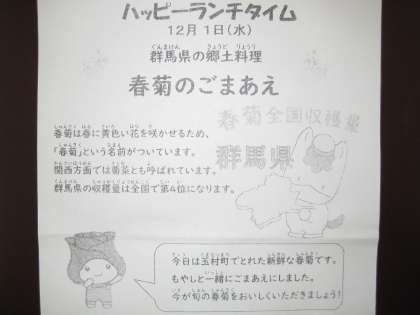 ハッピーランチタイム
12月1日(水)
群馬県の郷土料理
春菊のごまあえ
春菊は春に黄色い花を咲かせるため、
「春菊」という名前がついています。
関西方面では菊菜とも呼ばれています。
群馬県の収穫量は全国で第4位になります。
春菊全国収穫量
群馬県
今日は玉村町でとれた新鮮な春菊です。
もやしと一緒にごまあえにしました。
今が旬の春菊をおいしくいただきましょう!